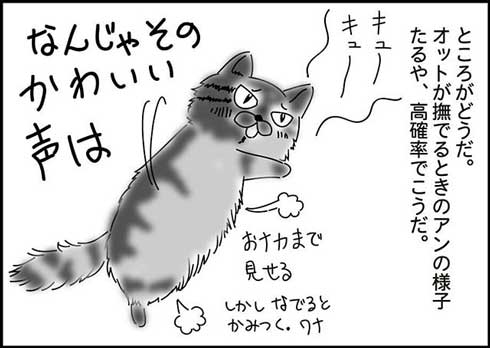 ところがどうだ。
オットが撫でるときのアンの様子
たるや、高確率でこうだ。
キュー
キュー
なんじゃその
かわいい
声は
おナカまで
見せる
しかしなでると
かみつく。ワナ